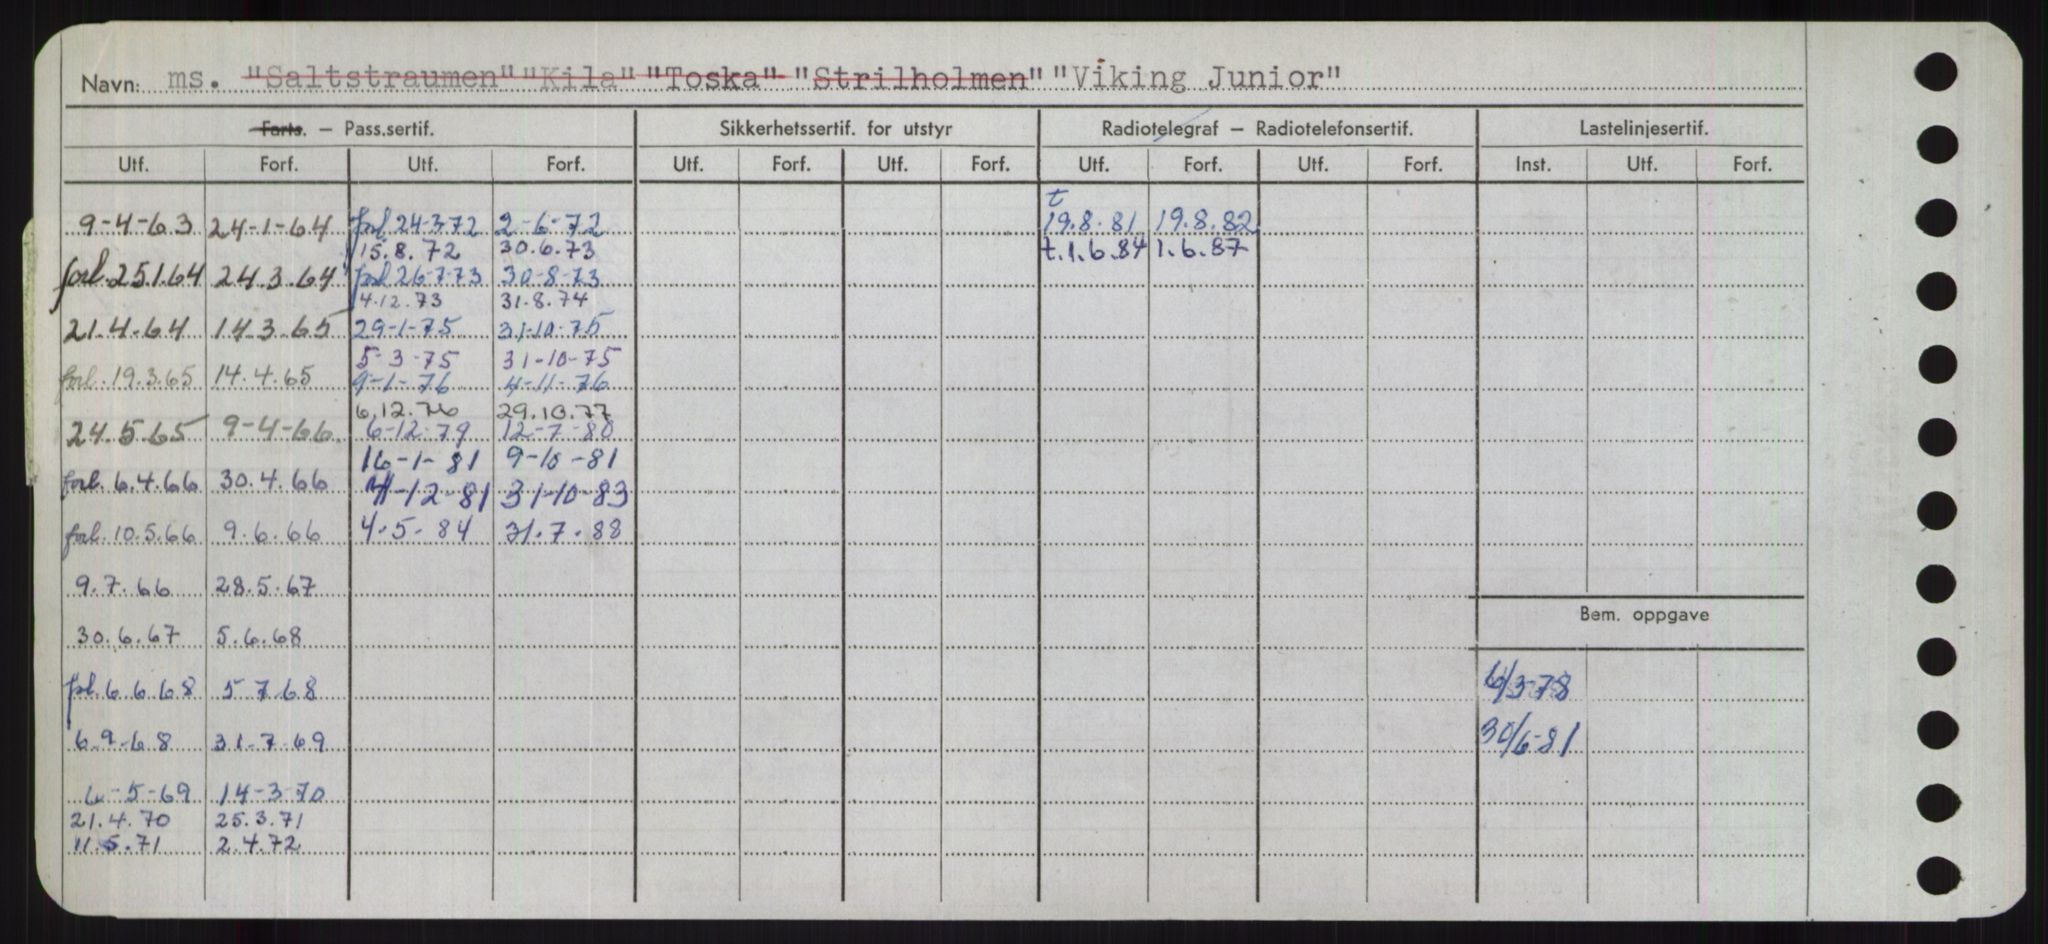 Navn: ms. "Saltstraumen" "Kila" "Toska" "Strilholmen" "Viking Junior"
Farts. – Pass.sertif. Sikkerhetssertif. for utstyr Radiotelegraf – Radiotelefonsertif. Lastelinjesertif.
Utf. Forf. Utf. Forf. Utf. Forf. Utf. Forf. Utf. Forf. Utf. Forf. Inst. Utf. Forf.
t
9-4-63 24-1-64 forl 24-3-72 2-6-72 19.8.81 19.8.82
15.8.72 30.6.73 t.1.6.84 1.6.87
forl.25.1.64 24.3.64 forl 26-7-73 30-8-73
4.12.73 31.8.74
21.4.64 14.3.65 29-1-75 31-10-75
5-3-75 31-10-75
forl.19.3.65 14.4.65 9-1-76 4-11-76
6.12.76 29.10.77
24.5.65 9-4-66 6-12-79 12-7-80
16-1-81 9-10-81
forl.6.4.66 30.4.66 -12-81 31-10-83
forl.10.5.66 9.6.66 4.5.84 31.7.88
9.7.66 28.5.67
Bem. oppgave
30.6.67 5.6.68
forl.6.6.68 5.7.68 6/3-78
6.9-68 31.7.69 30/6-81
6-5-69 14-3-70
21.4.70 25.3.71
11.5.71 2.4.72